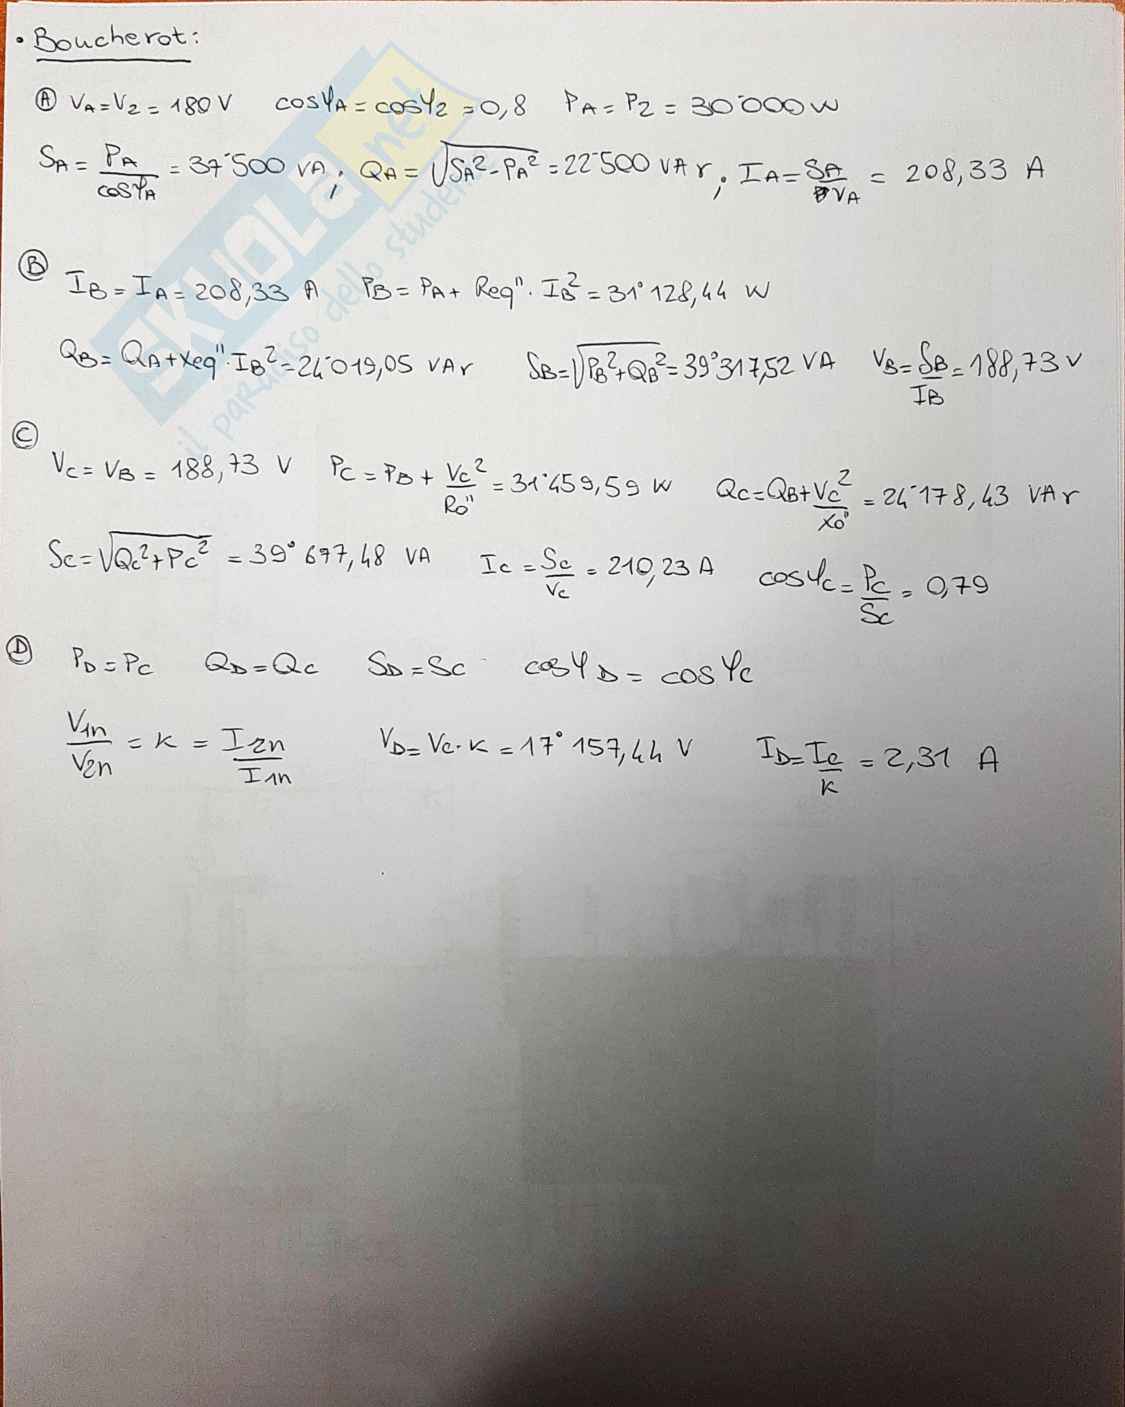 • Boucherot:
Ⓐ VA = V2 = 180 V cosφA = cosφ2 = 0,8 PA = P2 = 30˙000 W
SA = PA/cosφA = 37˙500 VA ; QA = √(SA² - PA²) = 22˙500 VAr ; IA = SA/VA = 208,33 A
Ⓑ IB = IA = 208,33 A PB = PA + Req" · IB² = 31˙128,44 W
QB = QA + Xeq" · IB² = 24˙019,05 VAr SB = √(PB² + QB²) = 39°317,52 VA VB = SB/IB = 188,73 V
Ⓒ VC = VB = 188,73 V PC = PB + VC²/R0" = 31˙459,59 W QC = QB + VC²/X0" = 24˙178,43 VAr
SC = √(QC² + PC²) = 39° 677,48 VA IC = SC/VC = 210,23 A cosφC = PC/SC = 0,79
Ⓓ PD = PC QD = QC SD = SC cosφD = cosφC
V1n/V2n = K = I2n/I1n VD = VC · K = 17° 157,44 V ID = IC/K = 2,31 A
SKUOLA.net
il paradiso dello studente